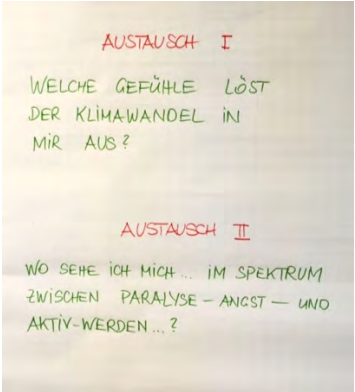 AUSTAUSCH I
WELCHE GEFÜHLE LÖST
DER KLIMAWANDEL IN
MIR AUS?
AUSTAUSCH II
WO SEHE ICH MICH... IM SPEKTRUM
ZWISCHEN PARALYSE – ANGST – UND
AKTIV-WERDEN...?